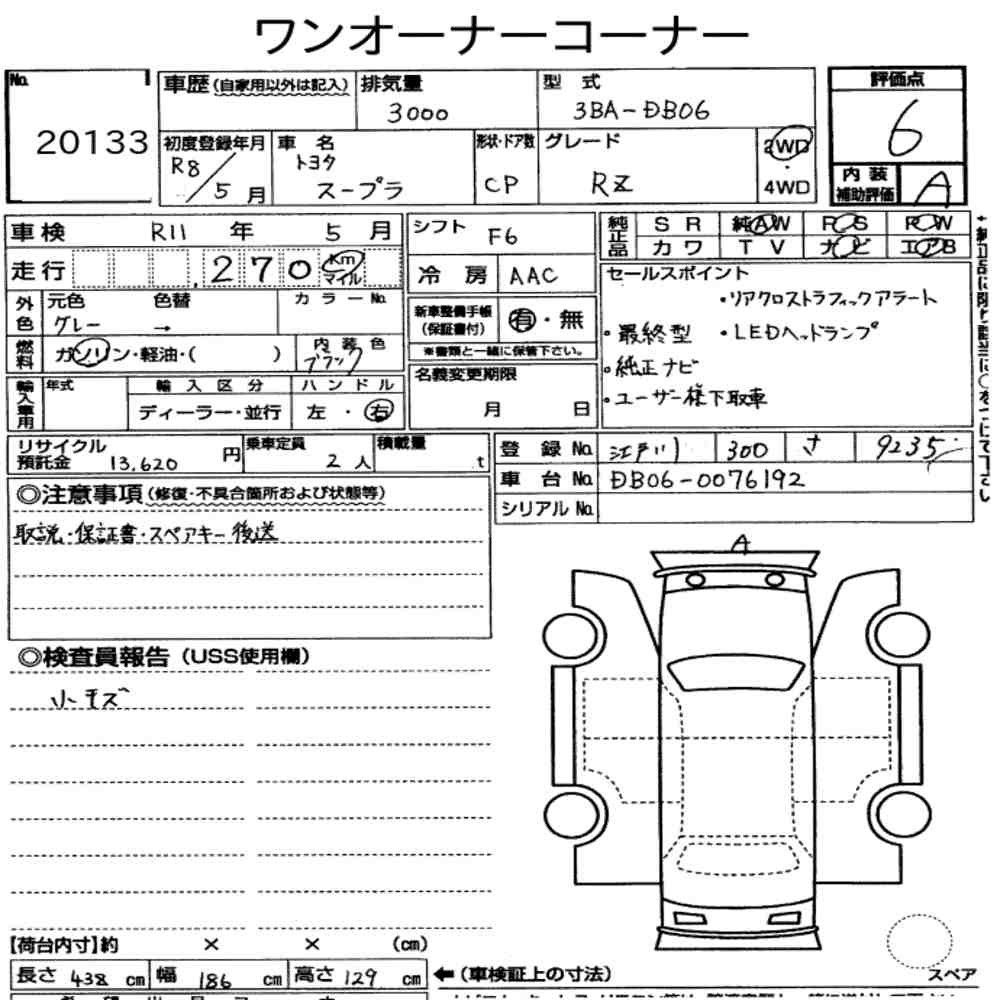 ワンオーナーコーナー
No. 20133
車歴(自家用以外は記入) 排気量 3000 型式 3BA-DB06
初度登録年月 R8/5月 車名 トヨタ スープラ 形状・ドア数 CP グレード RZ 2WD・4WD
評価点 6
内装補助評価 A
車検 R11年 5月 シフト F6
純正品 SR 純AW PS PW
カワ TV ナビ エアB
走行 270 Km マイル 冷房 AAC
セールスポイント
・リアクロストラフィックアラート
・最終型 ・LEDヘッドランプ
・純正ナビ
・ユーザー様下取車
外色 元色 グレー 色替 → カラーNo.
新車整備手帳(保証書付) 有・無
※書類と一緒に保管下さい。
燃料 ガソリン・軽油・( ) 内装色 ブラック
名義変更期限 月 日
輸入車用 年式 輸入区分 ディーラー・並行 ハンドル 左・右
リサイクル預託金 13,620円 乗車定員 2人 積載量 t
登録No. 江戸川 300 さ 9235
車台No. DB06-0076192
シリアルNo.
◎注意事項(修復・不具合箇所および状態等)
取説・保証書・スペアキー後送
A
◎検査員報告(USS使用欄)
小キズ
【荷台内寸】約 × × (cm)
長さ 438 cm 幅 186 cm 高さ 129 cm ←(車検証上の寸法)
スペア